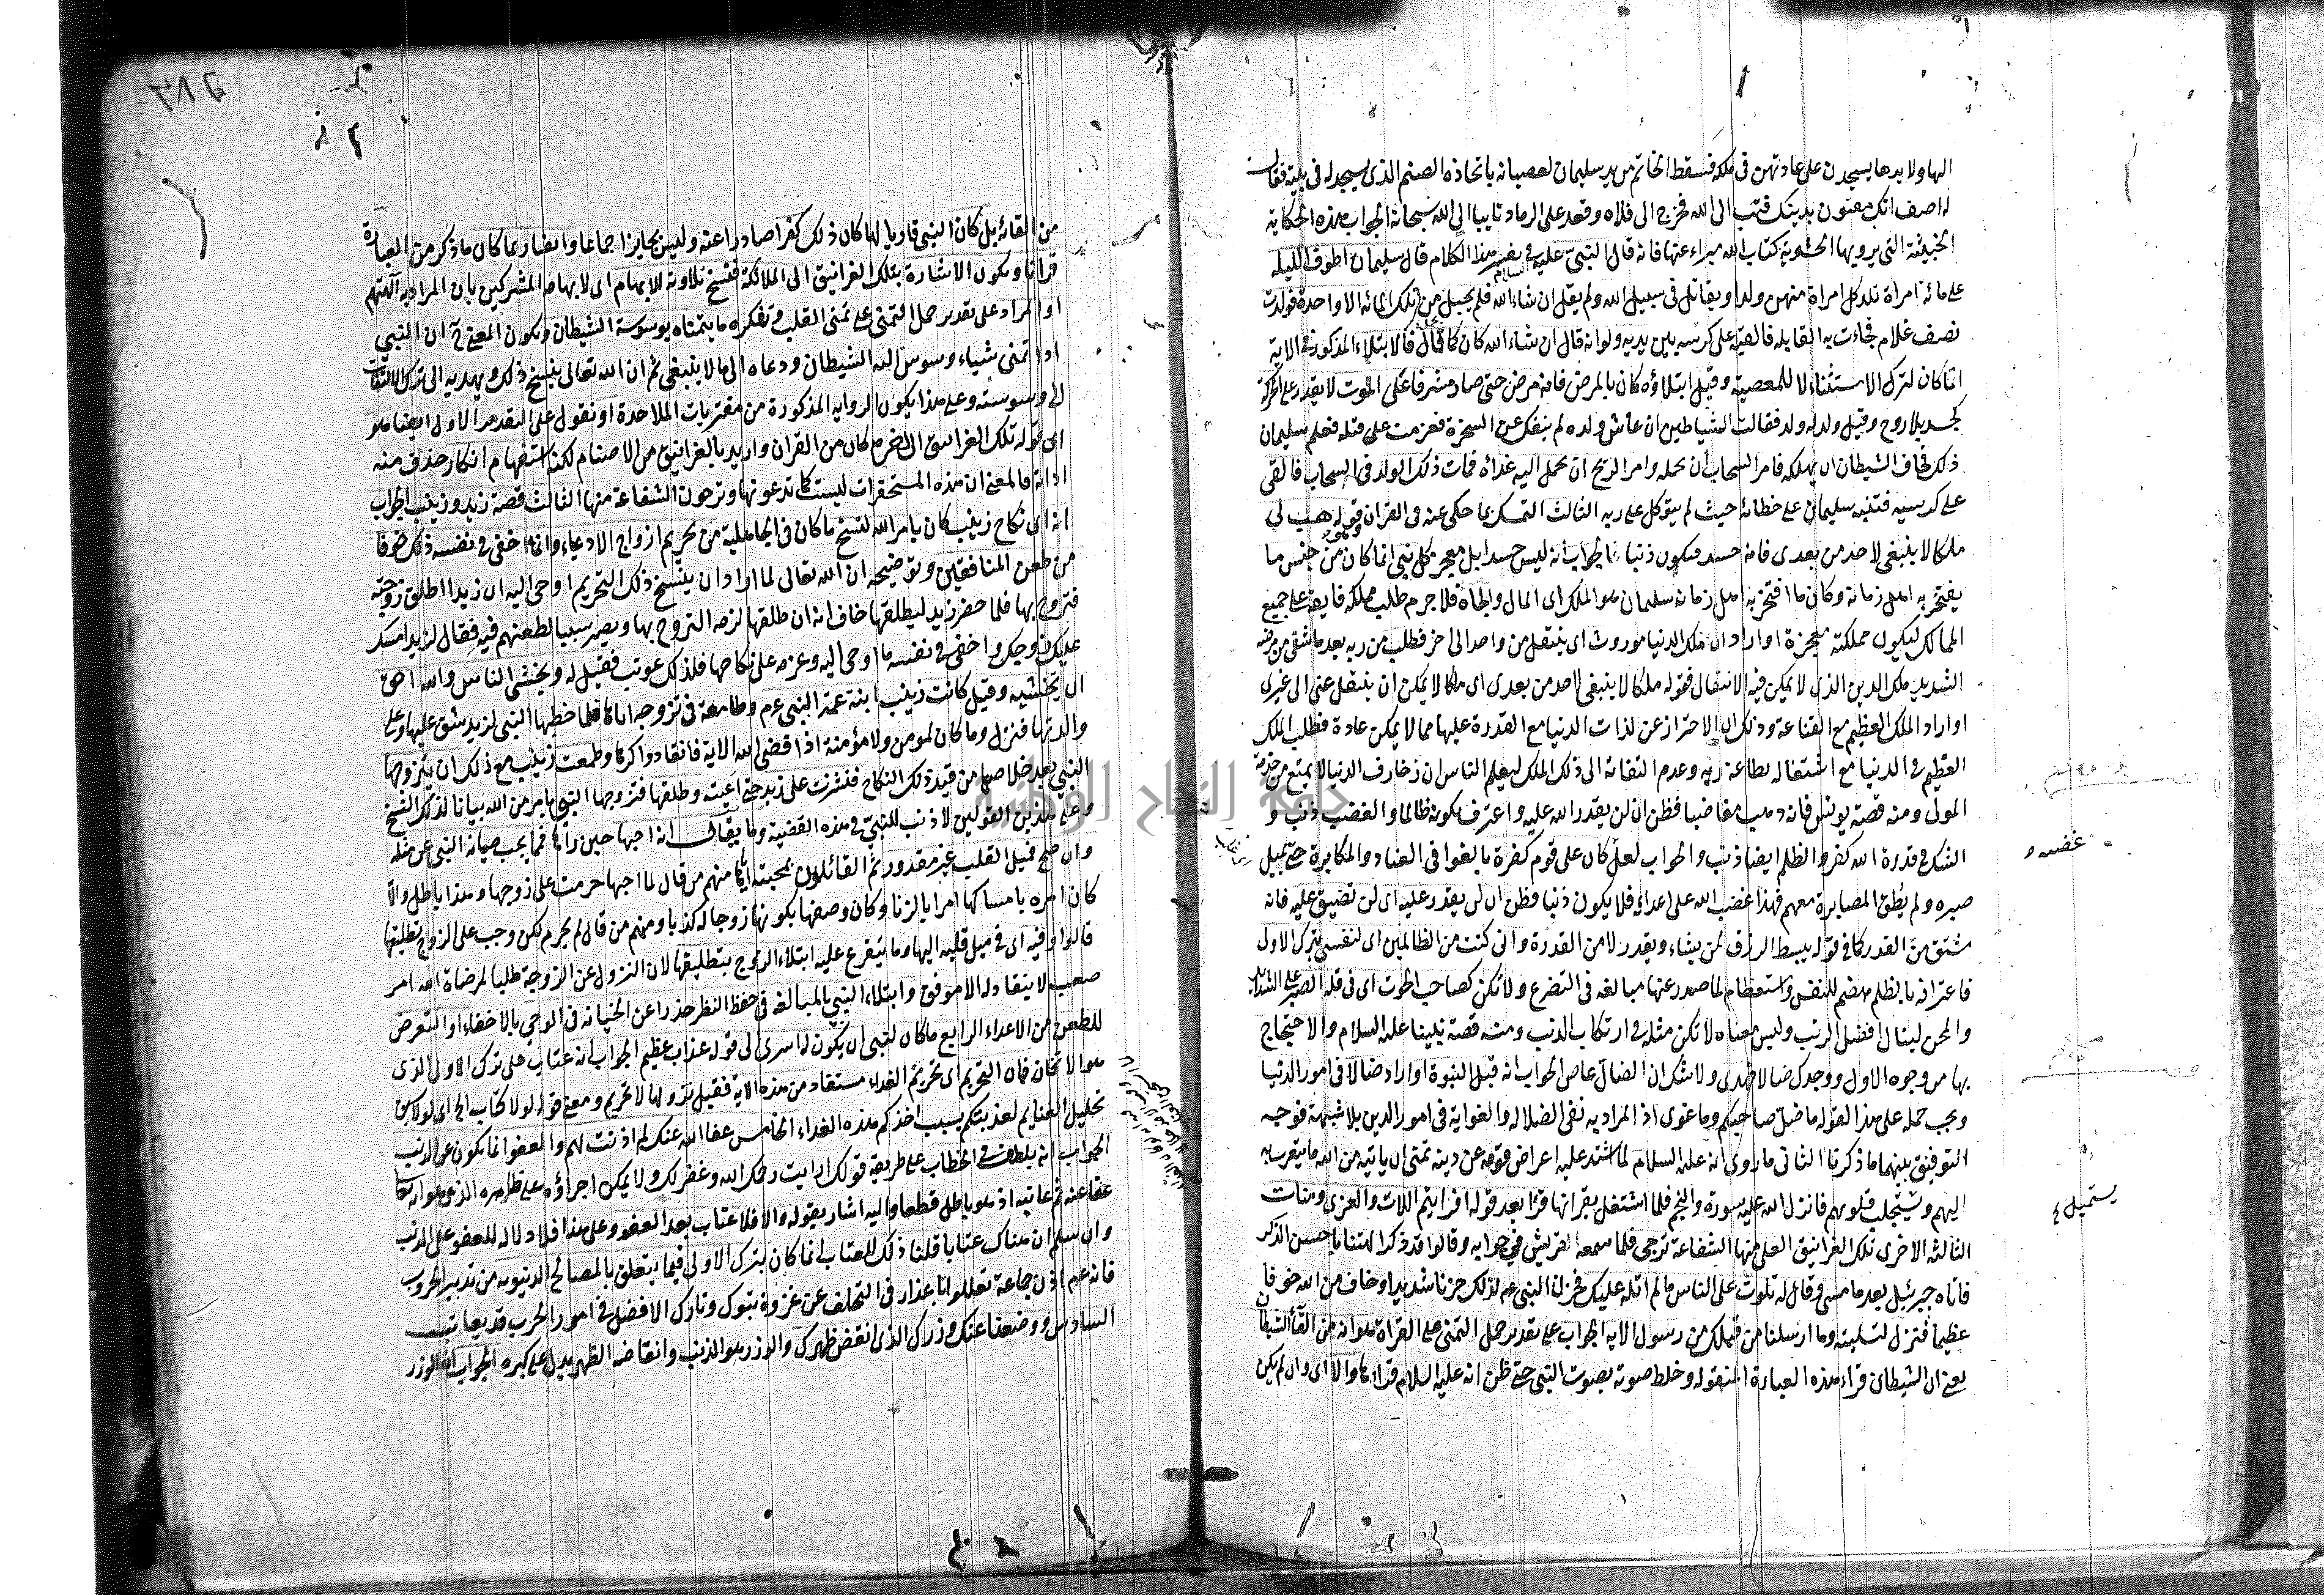 اليها ولا بدها يسجدن على عادتهن في ملكه فسقط الخاتم من يد سليمان لعصيانه باتخاذه الصنم الذي يسجد له في بيته فقال
له اصف انك مفتون بدينك فتب الى الله فخرج الى فلاه وقعد على الرماد تايبا الى الله سبحانه الجواب هذه الحكاية
الخبيثة التي يرويها الحشوية كتاب الله مبراء عنها فانه قال النبي عليه السلام في تفسير هذا الكلام قال سليمان اطوف الليله
على مائة امراة تلد كل امراة منهن ولدا ويقاتل في سبيل الله ولم يقل ان شاء الله فلم يحبل من تلك المائه الا واحدة فولدت
نصف غلام فجاءت به القابله فالقته على كرسيه بين يديه ولو انه قال ان شاء الله كان كما قال فالابتلاء المذكور في الاية
انما كان لترك الاستثناء لا للمعصية وقيل ابتلاؤه كان بالمرض فانه مرض حتى صار مشرفا على الموت لا يقدر على الحركة
كجسد بلا روح وقيل ولد له ولد فقالت الشياطين ان عاش ولده لم ننفك عن السخرة فعزمت على قتله فعلم سليمان
ذلك فخاف الشيطان ان يهلكه فامر السحاب ان يحمله وامر الريح ان يحمل اليه غداه فمات ذلك الولد في السحاب فالقى
على كرسيه فتنبه سليمان على خطائه حيث لم يتوكل على ربه الثالث التمسك بما حكى عنه في القران قوله هب لي
ملكا لا ينبغي لاحد من بعدى فانه حسد فيكون ذنبا الجواب انه ليس حسدا بل معجز كل نبي انما كان من جنس ما
يفتخر به اهل زمانه وكان ما افتخر به اهل زمانه سليمان هو الملك اى المال والجاه فلا جرم طلب مملكة فايقة على جميع
الممالك ليكون مملكته معجزة او اراد ان ملك الدنيا موروث اى ينتقل من واحد الى اخر فطلب من ربه بعد ما شفى من مرضه
الشديد ملك الدين الذى لا يمكن فيه الانتقال فقوله ملكا لا ينبغي لاحد من بعدى اى ملكا لا يمكن ان ينتقل عني الى غيرى
او اراد الملك العظيم مع القناعة وذلك ان الاحتراز عن لذات الدنيا مع القدرة عليها مما لا يمكن عادة فطلب الملك
العظيم في الدنيا مع اشتغاله بطاعة ربه وعدم التفاته الى ذلك الملك ليعلم الناس ان زخارف الدنيا لا يمنع من خدمة
المولى ومنه قصة يونس فانه ذهب مغاضبا فظن ان لن يقدر الله عليه واعترف بكونه ظالما والغضب ذنب و
الشك في قدرة الله كفر والظلم ايضا ذنب والجواب لعل كان على قوم كفرة بالغوا في العناد والمكابرة حتى عيل
صبره ولم يطق المصابرة معهم فهذا غضب الله على اعدائه فلا يكون ذنبا فظن ان لن يقدر عليه اى لن نضيق عليه فانه
مشتق من القدر كما في قوله يبسط الرزق لمن يشاء ويقدر لا من القدرة واني كنت من الظالمين اى لنفسي بترك الاولى
فاعترافه بالظلم هضم للنفس واستعظام لما صدر عنها مبالغه في التضرع ولا تكن كصاحب الحوت اى في قلة الصبر على الشدائد
والمحن لينال افضل الرتب وليس معناه لا تكن مثله في ارتكاب الذنب ومنه قصة نبينا عليه السلام والاحتجاج
بها من وجوه الاول ووجدك ضالا فهدى ولا شك ان الضال عاص الجواب انه قبل النبوة او اراد ضالا في امور الدنيا
ويجب حمله على هذا لقوله ما ضل صاحبكم وما غوى اذ المراد به نفى الضلاله والغواية في امور الدين بلا شبهة فوجه
التوفيق بينهما ما ذكرنا الثاني ما روى انه عليه السلام لما اشتد عليه اعراض قومه عن دينه تمنى ان ياتيه من الله ما يتقرب به
اليهم ويستجلب قلوبهم فانزل الله عليه سورة والنجم فلما اشتغل بقراتها قرا بعد قوله افرايتم اللات والعزى ومنات
الثالثة الاخرى تلك الغرانيق العلى منها الشفاعة ترتجى فلما سمعه قريش فرحوا به وقالوا قد ذكر الهتنا باحسن الذكر
فاتاه جبرئيل بعد ما مسى وقال له تلوت على الناس ما لم اتله عليك فحزن النبي عم لذلك حزنا شديدا وخاف من الله خوفا
عظيما فنزل لتسليته وما ارسلنا من قبلك من رسول الاية الجواب على تقدير حمل التمنى على القراة هو انه من القاء الشيطان
يعني ان الشيطان قراء هذه العبارة المنقوله وخلط صوته بصوت النبي حتى ظن انه عليه السلام قراها والا اى وان لم يكن
غضبه و
يستميل
من القائه بل كان النبي قاريا لها كان ذلك كفرا صادرا عنه وليس بجايز اجماعا وايضا ربما كان ما ذكر من العبارة
قرانا ويكون الاشارة بتلك الغرانيق الى الملائكة فنسخ تلاوته للايهام اى لايهامه المشركين بان المراد به آلهتهم
او المراد على تقدير حمل التمنى على تمنى القلب وتفكره ما يتمناه بوسوسة الشيطان ويكون المعنى ان النبي
اذا تمنى شياء وسوس اليه الشيطان ودعاه الى ما لا ينبغى ثم ان الله تعالى ينسخ ذلك ويهديه الى ترك الالتفات
الى وسوسته وعلى هذا يكون الروايه المذكورة من مفتريات الملاحدة او نقول على التقدير الاول ايضا هو
اى قوله تلك الغرانيق الى اخره كان من القران واريد بالغرانيق هى الاصنام لكنه استفهام انكار حذف منه
اداته فالمعنى ان هذه المستحقرات ليست كما تدعونها وترجون الشفاعة منها الثالث قصة زيد وزينب الجواب
انه اى نكاح زينب كان بامر الله لنسخ ما كان في الجاهلية من تحريم ازواج الادعياء وانما اخفى في نفسه ذلك خوفا
من طعن المنافقين وتوضيحه ان الله تعالى لما اراد ان ينسخ ذلك التحريم اوحى اليه ان زيدا اذا طلق زوجته
فتزوج بها فلما حضر زيد ليطلقها خاف انه ان طلقها لزمه التزوج بها ويصير سببا لطعنهم فيه فقال لزيد امسك
عليك زوجك واخفى في نفسه ما اوحى اليه وعزمه على نكاحها فلذلك عوتب فقيل له وتخشى الناس والله احق
ان تخشيه وقيل كانت زينب ابنة عمة النبي عم وطامعة في تزوجه اياها فلما خطبها النبي لزيد شق عليها وعلى
والدتها فنزل وما كان لمومن ولا مؤمنة اذا قضى الله الاية فانقادوا كرها وطمعت زينب مع ذلك ان يتزوجها
النبي بعد خلاصها من قيد ذلك النكاح فنشزت على زيد حتى اعيته وطلقها فتزوجها النبي بامر من الله بيانا لذلك النسخ
وعلى هذين القولين لا ذنب للنبي في هذه القضية وما يقال انه احبها حين رآها فمما يجب صيانة النبي عن مثله
وان صح فميل القلب غير مقدور ثم القائلون بمحبته اياها منهم من قال لما احبها حرمت على زوجها وهذا باطل والا
كان امره بامساكها امرا بالزنا وكان وصفها بكونها زوجا له كذبا ومنهم من قال لم يحرم لكن وجب على الزوج تطليقها
قالوا وفيه اى في ميل قلبه اليها وما يتفرع عليه ابتلاء الزوج بتطليقها لان النزول عن الزوجة طلبا لمرضاة الله امر
صعب لا ينقاد له الا موفق وابتلاء النبي بالمبالغه في حفظ النظر حذرا عن الخيانه في الوحي بالاخفاء او التعرض
للطعن من الاعداء الرابع ما كان لنبي ان يكون له اسرى الى قوله عذاب عظيم الجواب انه عتاب على ترك الاولى الذى
هو الاثخان فان التحريم اى تحريم الفداء مستفاد من هذه الاية فقبل نزولها لا تحريم ومعنى قوله لولا كتاب الخ اى لولا سبق
تحليل الغنايم لعذبتكم بسبب اخذكم هذه الفداء الخامس عفا الله عنك لم اذنت لهم والعفو انما يكون عن الذنب
الجواب انه تلطف في الخطاب على طريقة قولك ارايت رحمك الله وغفر لك ولا يمكن اجراؤه على ظاهره الذى هو انه تعا
عفا عنه ثم عاتبه اذ هو باطل قطعا واليه اشار بقوله والا فلا عتاب بعد العفو وعلى هذا فلا دلاله للعفو على الذنب
وان سلم ان هناك عتابا قلنا ذلك العتاب انما كان بترك الاولى فيما يتعلق بالمصالح الدنيويه من تدبير الحروب
فانه عم اذن جماعة تعللوا باعذار في التخلف عن غزوة تبوك وتارك الافضل في امور الحرب قد يعاتب
السادس ووضعنا عنك وزرك الذى انقض ظهرك والوزر هو الذنب وانقاضه الظهر يدل على كبره الجواب ان الوزر